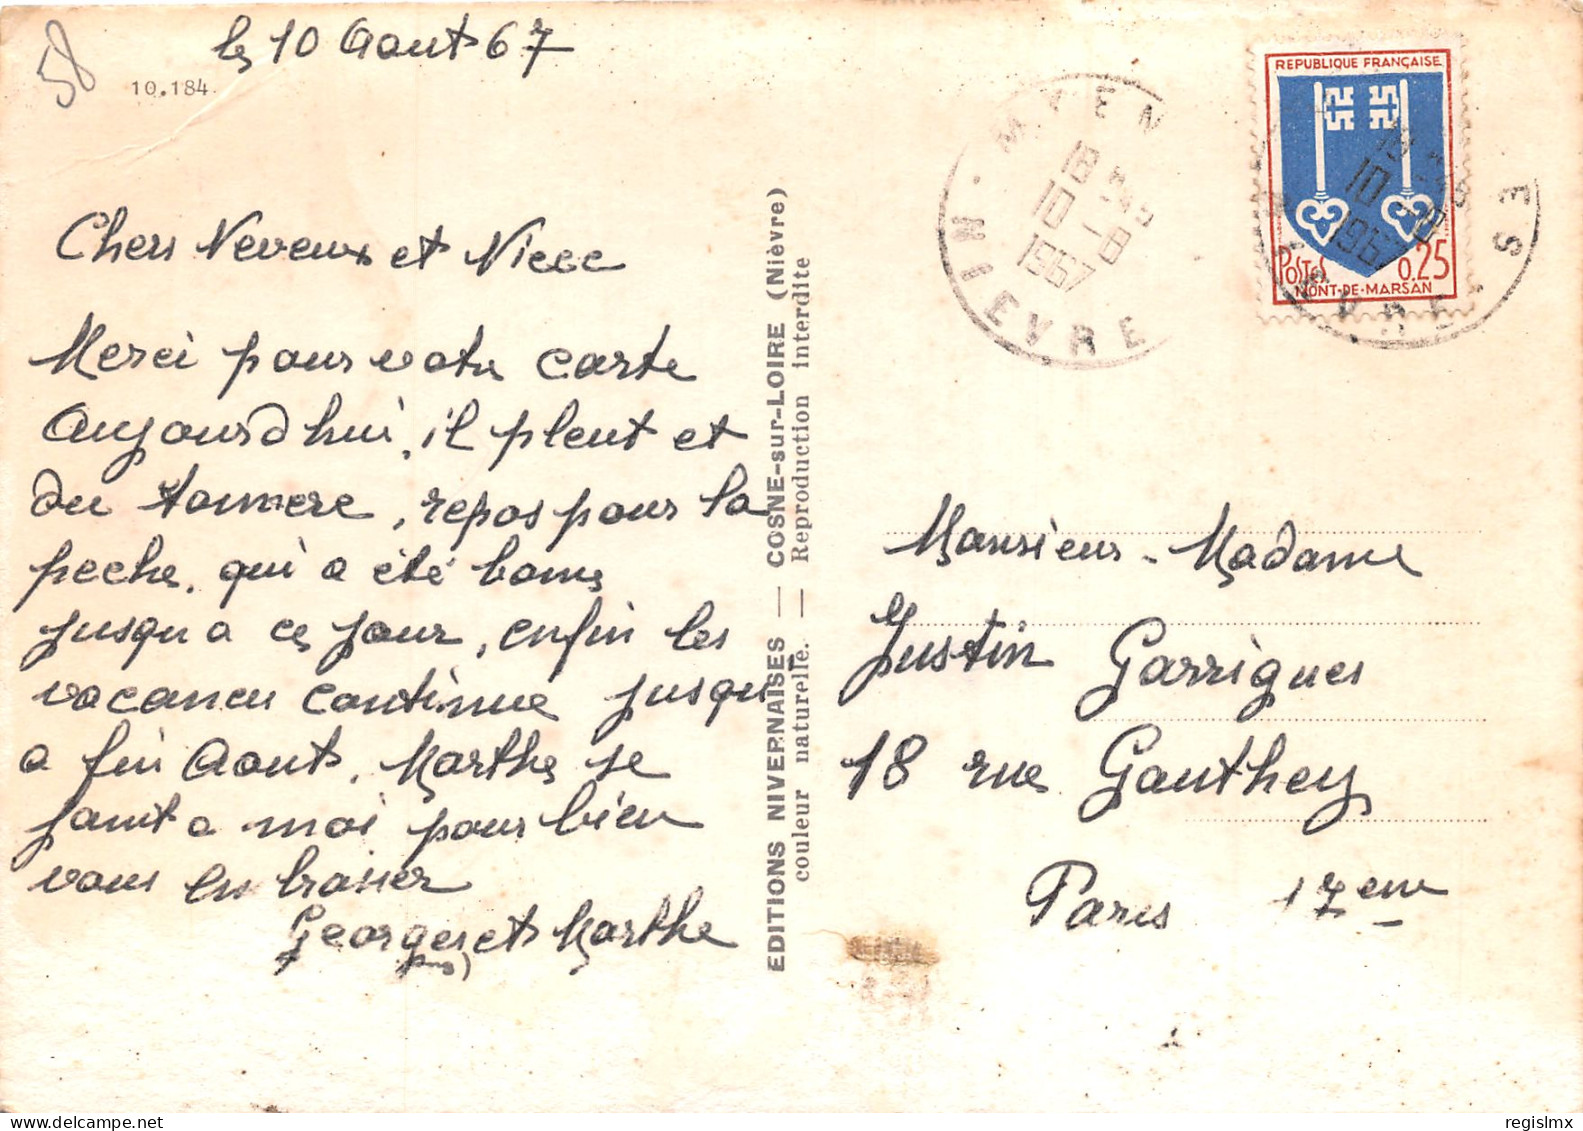 58
le 10 Aout 67
10.184
Chers Neveux et Niece
Merci pour votre carte
aujourd hui, il pleut et
du tonnere, repos pour la
peche, qui a été bonne
jusqu a ce jour, enfin les
vacances continue jusqu
a fin Aout, Marthe se
joint a moi pour bien
vous embrasser
Georges et Marthe
EDITIONS NIVERNAISES — COSNE-sur-LOIRE (Nièvre)
couleur naturelle. — Reproduction interdite
NIEVRE
18
10 -8
1967
REPUBLIQUE FRANÇAISE
POSTES 0,25
MONT-DE-MARSAN
10 -8
1967
Monsieur - Madame
Justin Garrigues
18 rue Gauthey
Paris 17eme
regislmx